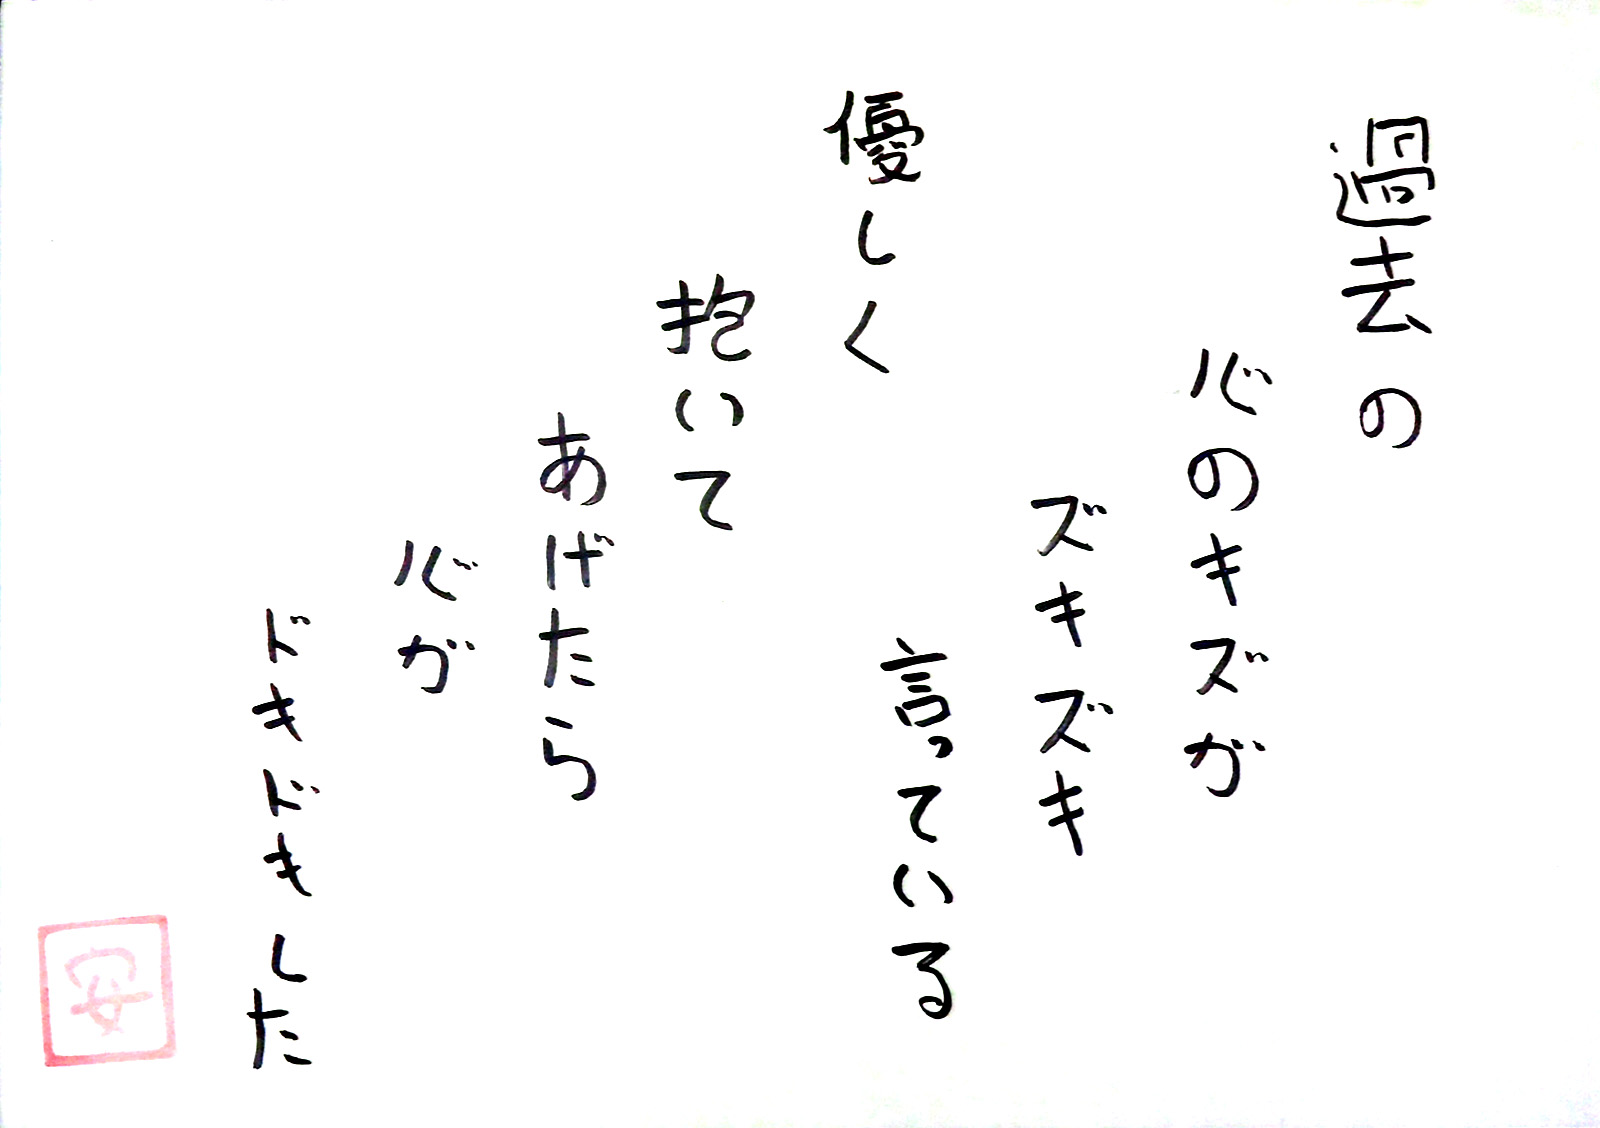 過去の
心のキズが
ズキズキ
言っている
優しく
抱いて
あげたら
心が
ドキドキした
安